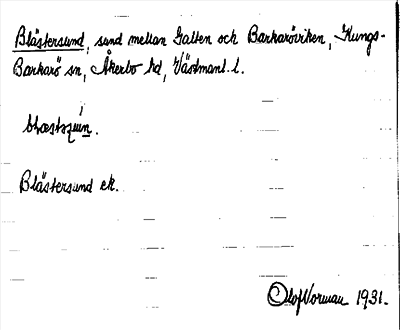 Blåstersund, sund mellan Galten och Barkaröviken, Kungs-
Barkarö sn, Åkerbo hd, Västmanl. l.
Blåstersund ek.
Olof Norman 1931.